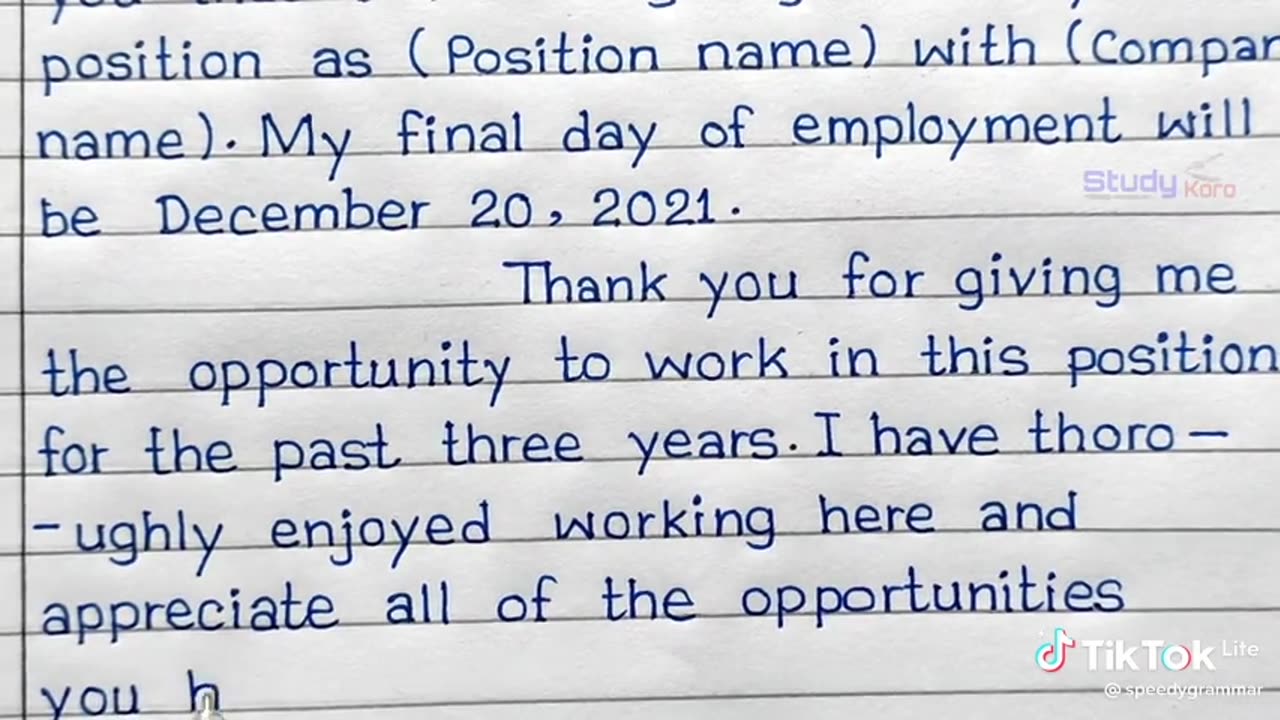 position as (Position name) with (Compan
name). My final day of employment will
Study Karo
be December 20, 2021.
Thank you for giving me
the opportunity to work in this position
for the past three years. I have thoro-
-ughly enjoyed working here and
appreciate all of the opportunities
TikTok Lite
you h
@speedygrammar